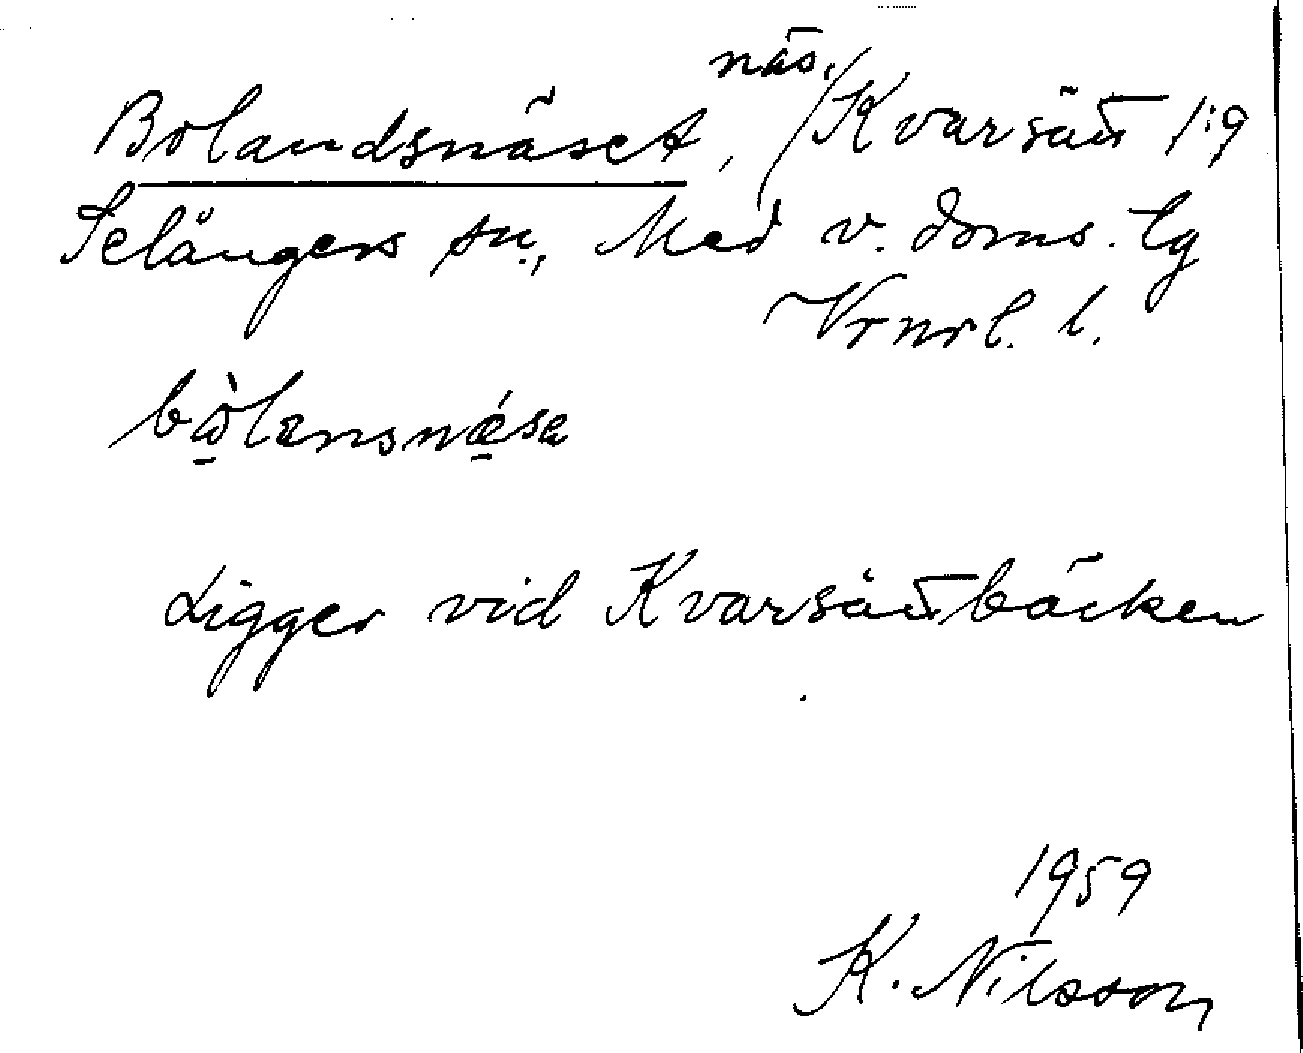 Bolandsnäset, näs, Kvarsätt 1:9
Selångers sn, Med v. doms. lg
Vrnrl. l.
Ligger vid Kvarsättbäcken
1959
K. Nilsson